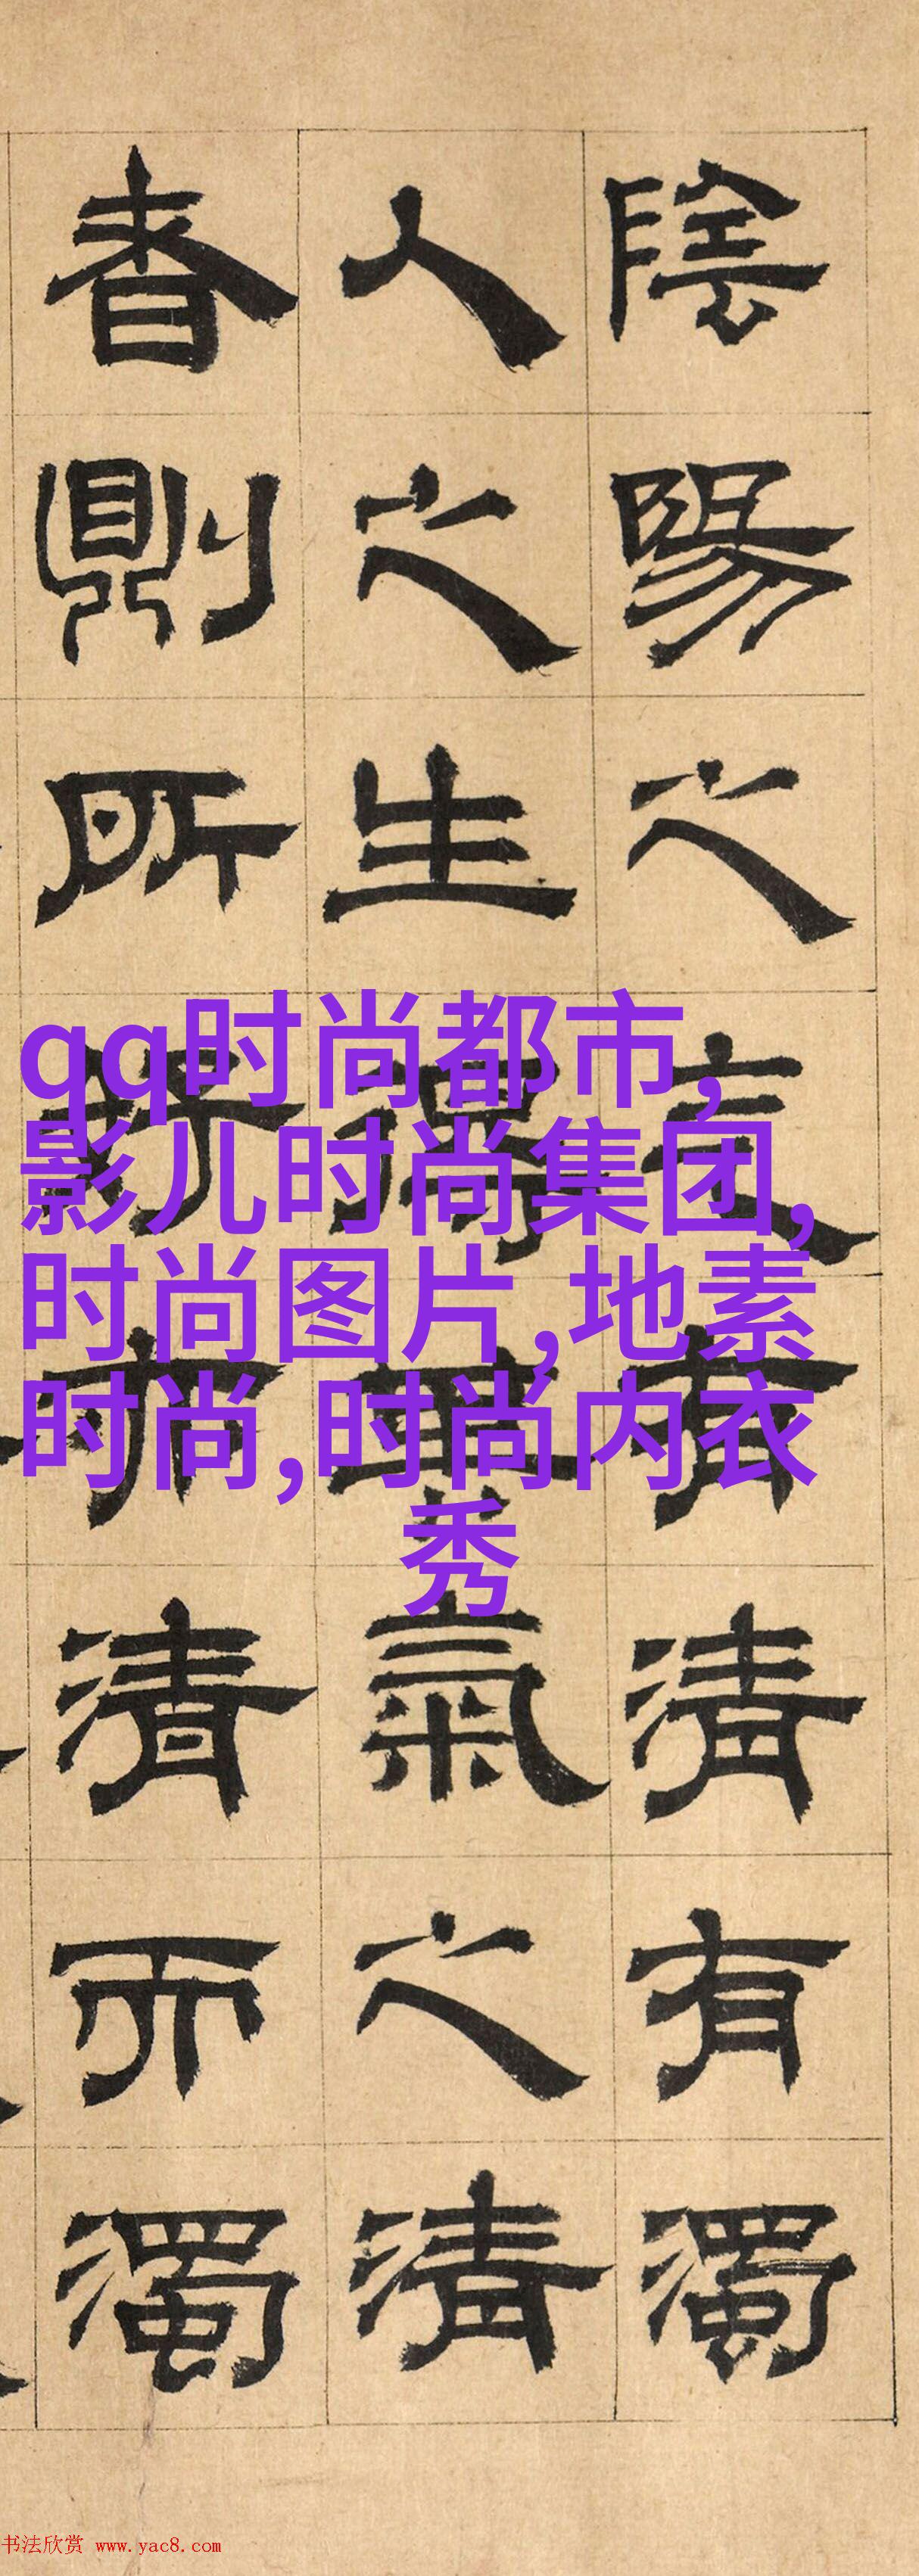 陰陽之气有清有濁
人之生得其氣之清
者則所好亦清而濁
qq时尚都市,
影儿时尚集团,
时尚图片,地素
时尚,时尚内衣
秀
书法欣赏 www.yac8.com